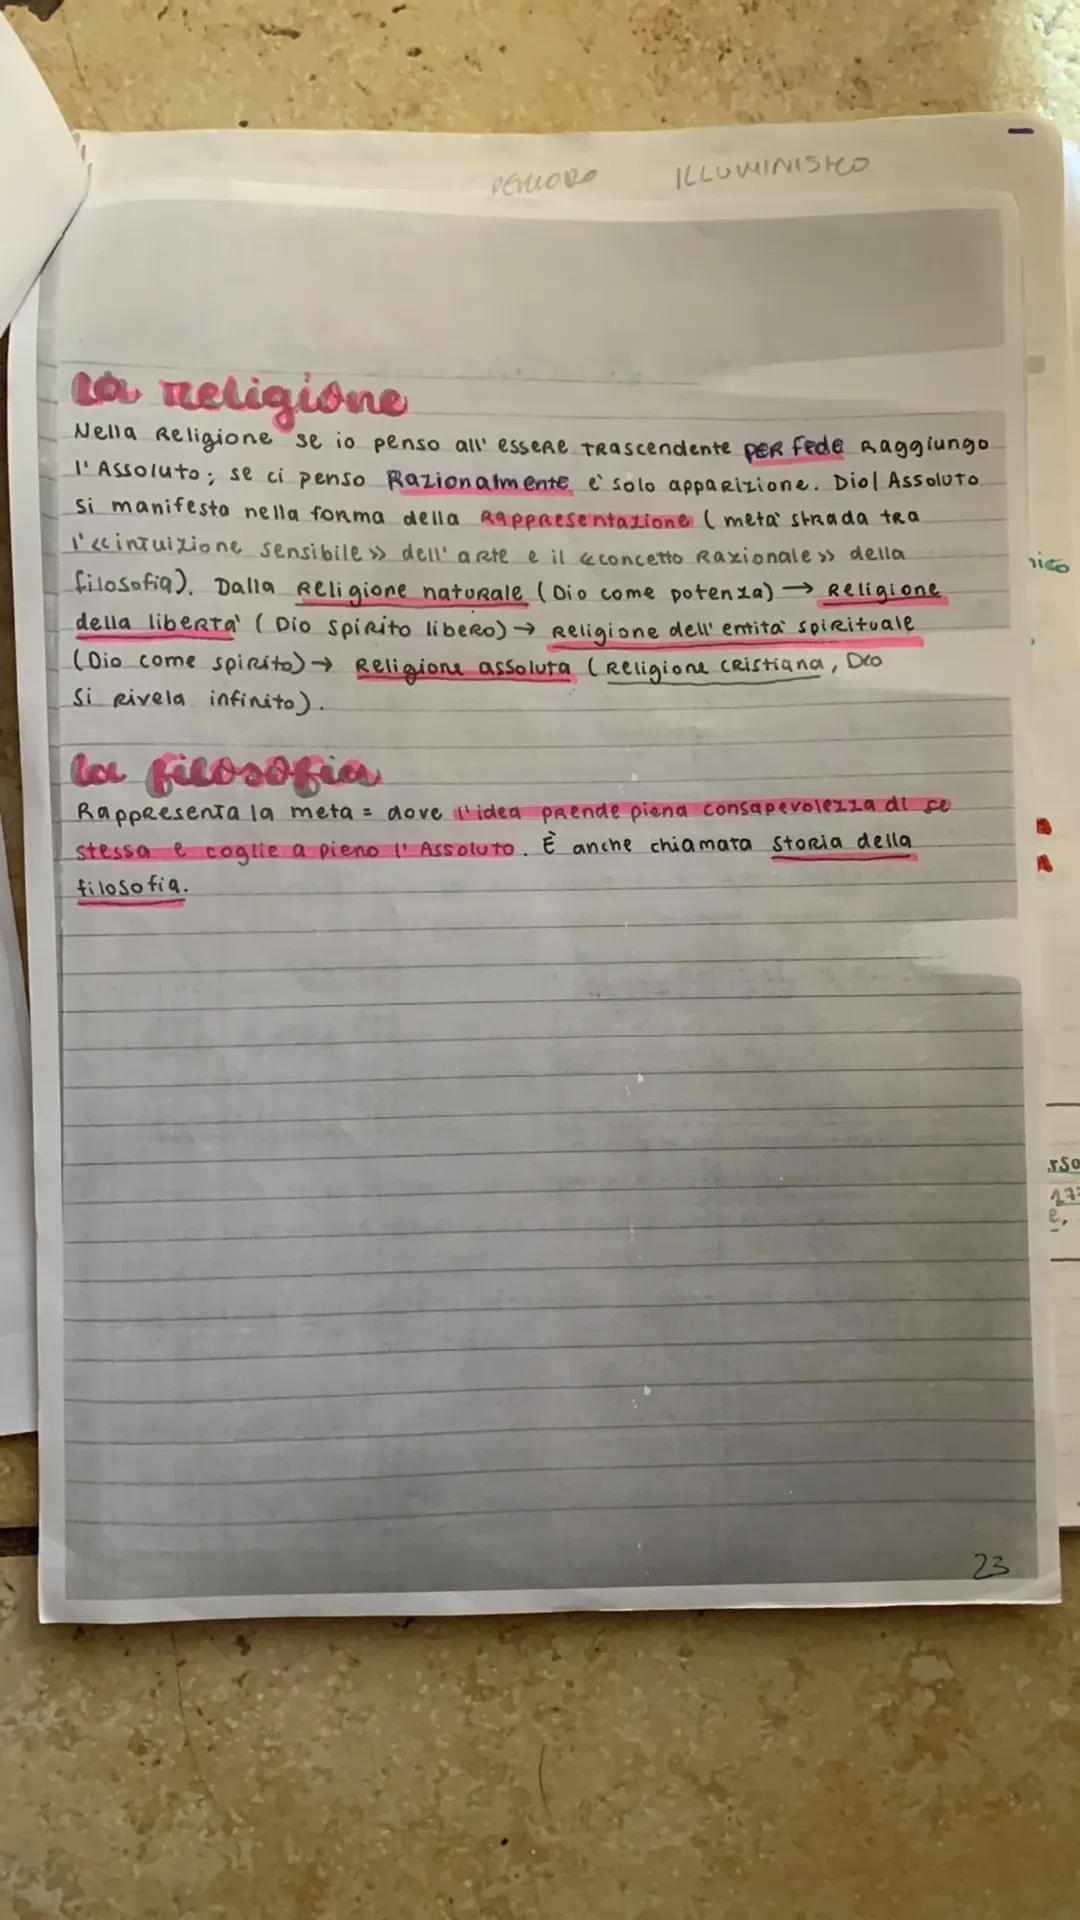 PERIODO ILLUMINISTICO
la religione
Nella Religione se io penso all' essere trascendente per fede raggiungo
l'Assoluto; se ci penso Razionalmente è solo apparizione. Dio/Assoluto
si manifesta nella forma della Rappresentazione (metà strada tra
l'«intuizione sensibile» dell'arte e il «concetto Razionale» della
filosofia). Dalla Religione naturale (Dio come potenza) → Religione
della libertà (Dio spirito libero) → Religione dell'entità spirituale
(Dio come spirito) → Religione assoluta (Religione cristiana, Dio
si rivela infinito).
la filosofia
Rappresenta la meta = dove l'idea prende piena consapevolezza di se
stessa e coglie a pieno l'Assoluto. È anche chiamata storia della
filosofia.
23